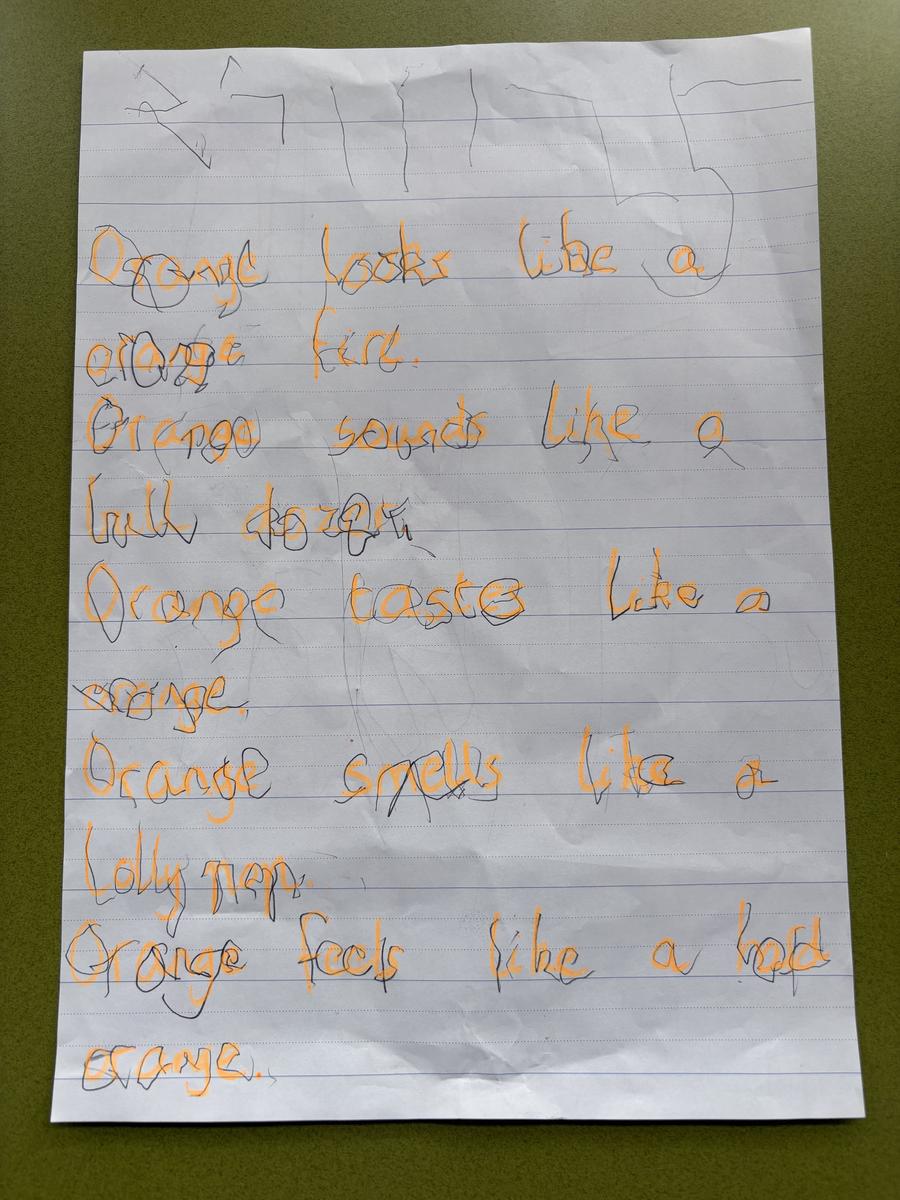 Orange looks like a
orange fire.
Orange sounds like a
bull dozer.
Orange tastes like a
orange.
Orange smells like a
Lolly pop.
Orange feels like a hard
orange.